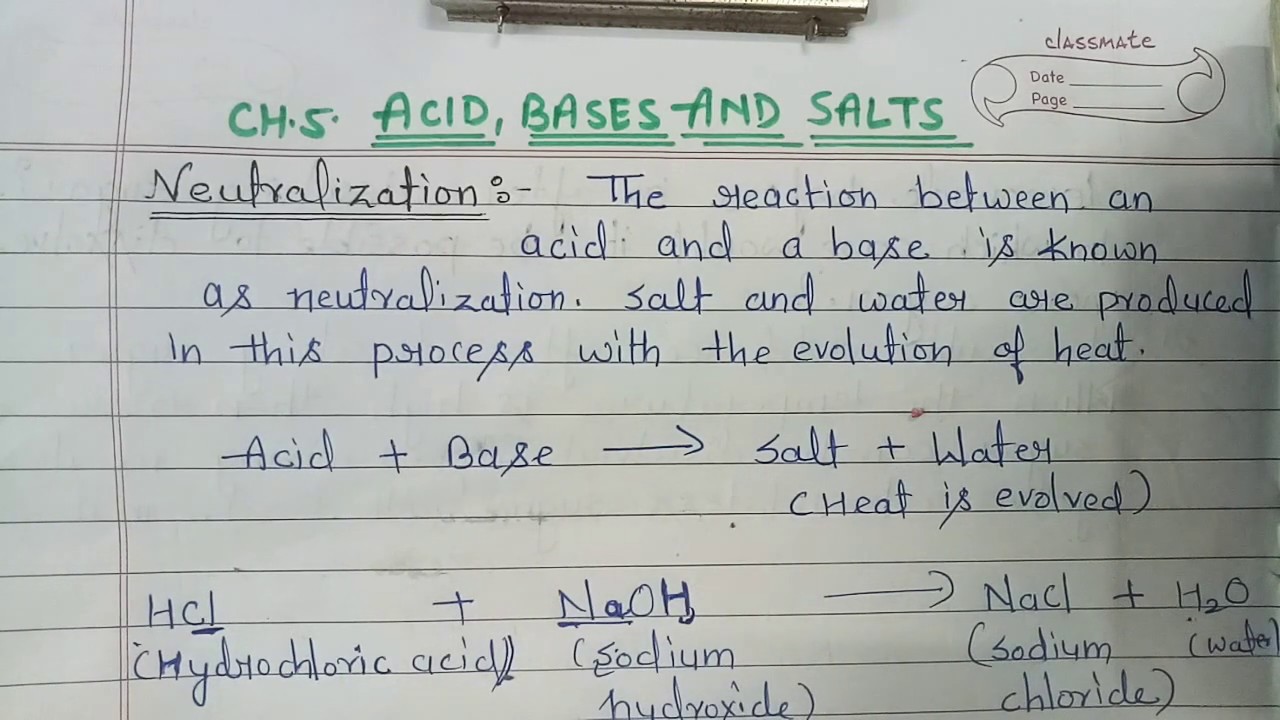 classmate
Date
Page
CH.5. ACID, BASES AND SALTS
Neutralization :- The reaction between an
acid and a base is known
as neutralization. Salt and water are produced
In this process with the evolution of heat.
Acid + Base → Salt + Water
(Heat is evolved)
HCl + NaOH → NaCl + H₂O
(Hydrochloric acid) (Sodium (Sodium (water)
hydroxide) chloride)